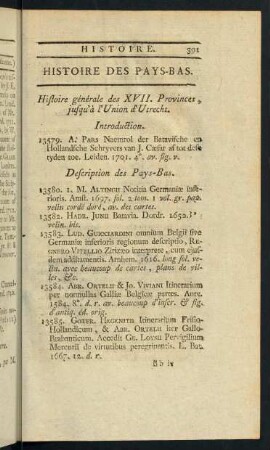 HISTOIRE. 391
HISTOIRE DES PAYS-BAS.
Histoire générale des XVII. Provinces,
jusqu'à l'Union d'Utrecht.
Introduction.
13579. A. PARS Naemrol der Batavische en
Hollandsche Schryvers van J. Cæsar af tot dese
tyden toe. Leiden. 1701. 4°. av. fig. v.
Description des Pays-Bas.
13580. 1. M. ALTINGII Notitia Germaniæ infe-
rioris. Amst. 1697. fol. 2 tom. 1 vol. gr. pap.
velin cordé doré, av. des cartes.
13582. HADR. JUNII Batavia. Dordr. 1652. 8°
velin. bis.
13583. LUD. GUICCIARDINI omnium Belgii sive
Germaniæ inferioris regionum descriptio, RE-
GNERO VITELLIO ZIRIZEO interprete, cum ejus-
dem additamentis. Arnhem. 1616. long fol. ve-
lin. avec beaucoup de cartes, plans de vil-
les, &c.
13584. ABR. ORTELII & JO. VIVIANI Itinerarium
per nonnullas Galliæ Belgicæ partes. Antv.
1584. 8°. d. r. av. beaucoup d'inscr. & fig.
d'antiq. éd. orig.
13585. GOTFR. HEGENITII Itinerarium Frisio-
Hollandicum, & ABR. ORTELII Iter Gallo-
Brabanticum. Accedit GE. LOYSII Pervigilium
Mercurii de virtutibus peregrinantis. L. Bat.
1667. 12. d. r.
Bb iv